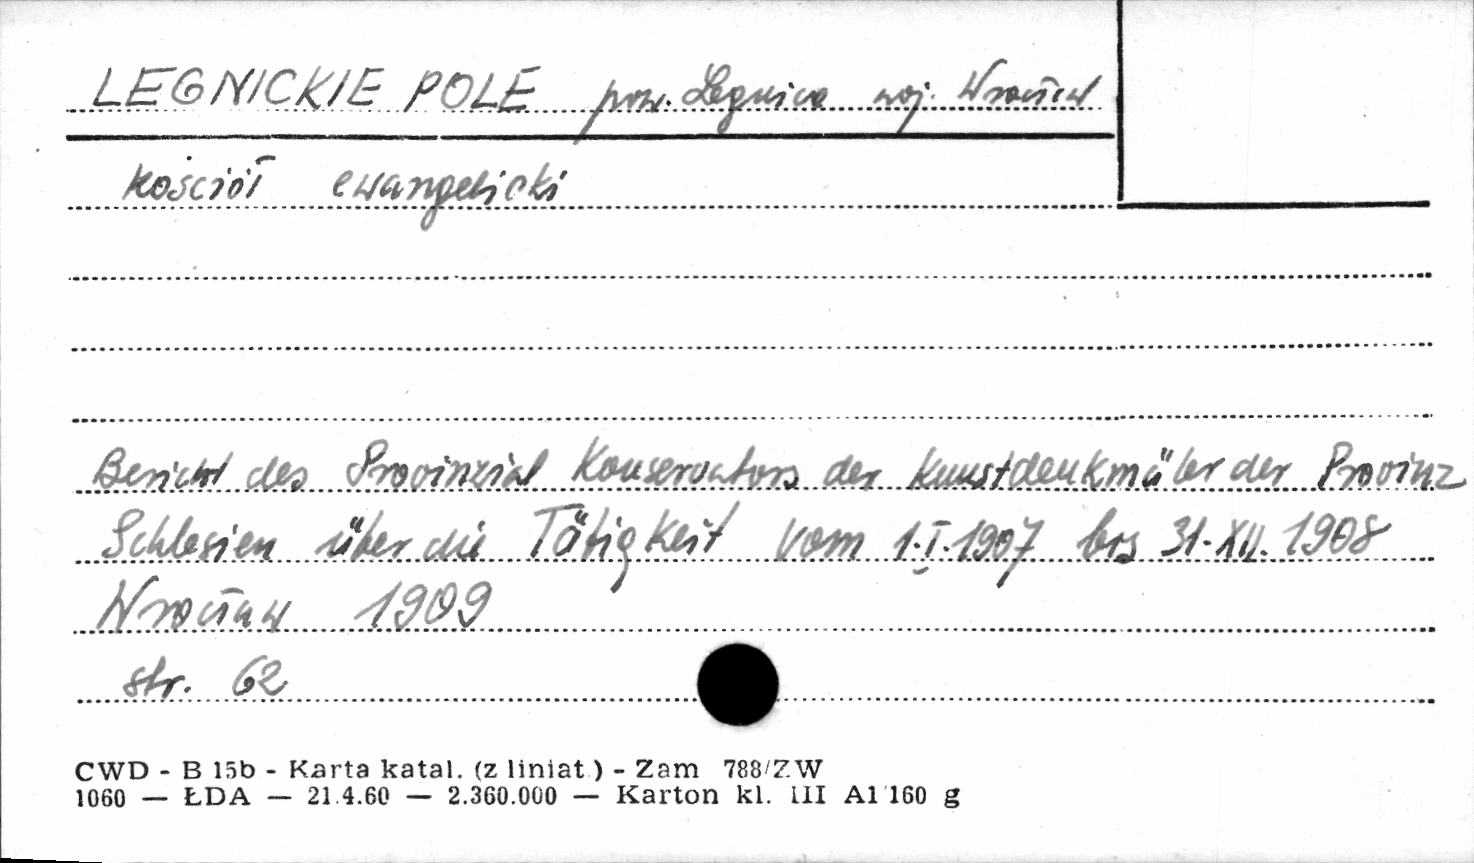 LEGNICKIE POLE pow. Legnica woj. Wrocław
kościół ewangelicki
Bericht des Provinzial Konservators der Kunstdenkmäler der Provinz
Schlesien über die Tätigkeit vom 1.I.1907 bis 31.XII.1908
Wrocław 1909
str. 62
CWD - B 15b - Karta katal. (z liniat.) - Zam 788/ZW
1060 — ŁDA — 21.4.60 — 2.360.000 — Karton kl. III A1 160 g